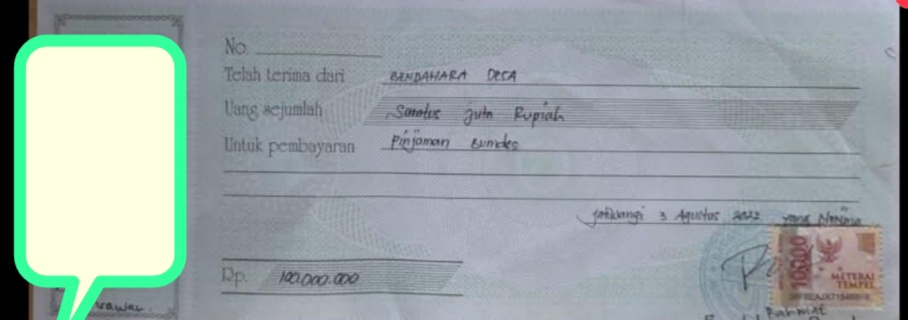 No.
Telah terima dari BENDAHARA DESA
Uang sejumlah Saratus juta Rupiah
Untuk pembayaran Pinjaman Bumdes
Jatiwangi 3 Agustus 2022 yang Nerima
10000
METERAI
TEMPEL
Rp. 100.000.000
Rahmat